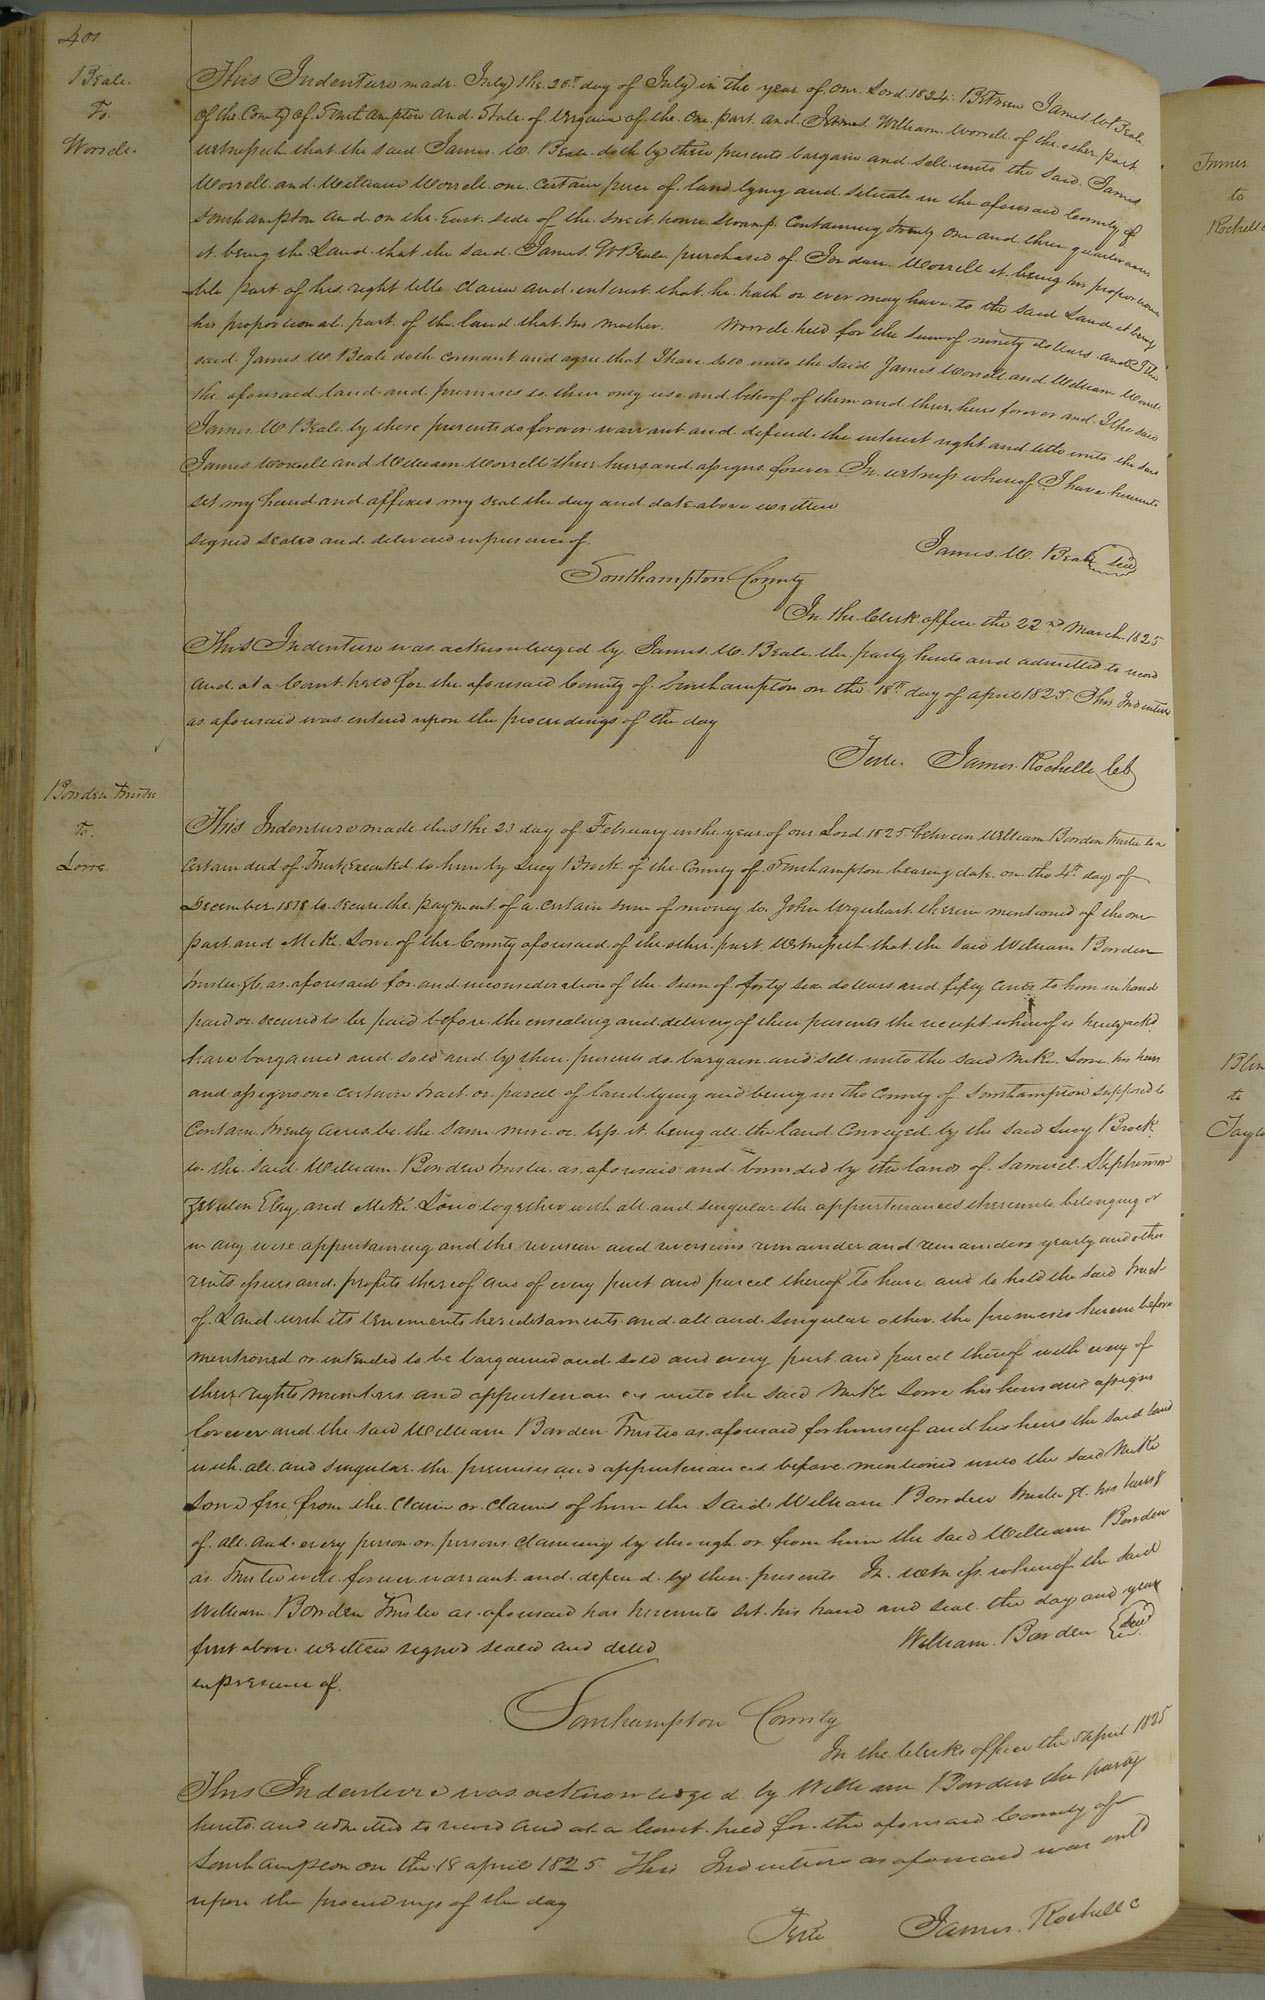 401
Beale
To
Worrele
This Indenture made July the 20th day of July in the year of our Lord 1824 Between James W Beale
of the County of Southampton and State of Virginia of the one part and James William Worrele of the other part
witnesseth that the said James W. Beale doth by these presents bargain and sell unto the said James
Worrell and William Worrell one certain piece of land lying and situate in the aforesaid County of
Southampton and on the East side of the swamp Containing twenty one and three quarter acres
it being the Land that the said James W Beale purchased of Jordan Worrell it being his proportiona
ble part of his right title claim and interest that he hath or ever may have to the said Land it being
his proportional part of the land that his mother Worrele held for the sum of ninety dollars and I the
said James W Beale doth covenant and agree that I have sold unto the said James Worrell and William Worrele
the aforesaid land and premises to their only use and behoof of them and their heirs forever and I the said
James W Beale by these presents do forever warrant and defend the interest right and title unto the said
James Worrell and William Worrell their heirs and assigns forever In witness whereof I have hereunto
set my hand and affixed my seal the day and date above written
signed sealed and delivered in presence of
James W. Beale Seal
Southampton County
In the Clerk office the 22nd March 1825
This Indenture was acknowledged by James W. Beale the party hereto and admitted to record
and at a Court held for the aforesaid County of Southampton on the 18th day of april 1825 This Indenture
as aforesaid was entered upon the proceedings of the day
Teste. James Rochelle
Bowden Trustee
To.
Love
This Indenture made this the 23 day of February in the year of our Lord 1825 between William Bowden trustee to a
certain deed of Trust executed to him by Lucy Brock of the County of Southampton bearing date on the 4th day of
December 1818 to secure the payment of a certain sum of money to John Urquhart therein mentioned of the one
part and Love of the County aforesaid of the other part Witnesseth that the said William Bowden
trustee as aforesaid for and in consideration of the sum of forty six dollars and fifty cents to him in hand
paid or secured to be paid before the ensealing and delivery of these presents the receipt whereof is hereby ackd
have bargained and sold and by these presents do bargain and sell unto the said Love his heirs
and assigns one certain tract or parcel of land lying and being in the County of Southampton supposed to
Contain twenty acres be the same more or less it being all the land Conveyed by the said Lucy Brock
to the said William Bowden trustee as aforesaid and bounded by the lands of Samuel Stephenson
and Love together with all and singular the appurtenances thereunto belonging or
in any wise appertaining and the reversion and reversions remainder and remainders yearly and other
rents issues and profits thereof and of every part and parcel thereof To have and to hold the said tract
of Land with its tenements hereditaments and all and singular other the premises herein before
mentioned or intended to be bargained and sold and every part and parcel thereof with every of
their rights members and appurtenances unto the said Love his heirs and assigns
forever and the said William Bowden Trustee as aforesaid for himself and his heirs the said land
with all and singular the premises and appurtenances before mentioned unto the said
Love free from the claim or claims of him the said William Bowden trustee his heirs &
of all and every person or persons claiming by through or from him the said William Bowden
as Trustee will forever warrant and defend by these presents In witness whereof the said
William Bowden Trustee as aforesaid has hereunto set his hand and seal the day and year
first above written signed sealed and deld
in presence of
William Barden Seal
Southampton County
In the Clerks office the 5 April 1825
This Indenture was acknowledged by William Bowden the party
hereto and admitted to record and at a Court held for the aforesaid County of
Southampton on the 18 april 1825 This Indenture as aforesaid was entd
upon the proceedings of the day
Teste James Rochelle C
to
Rochelle
to